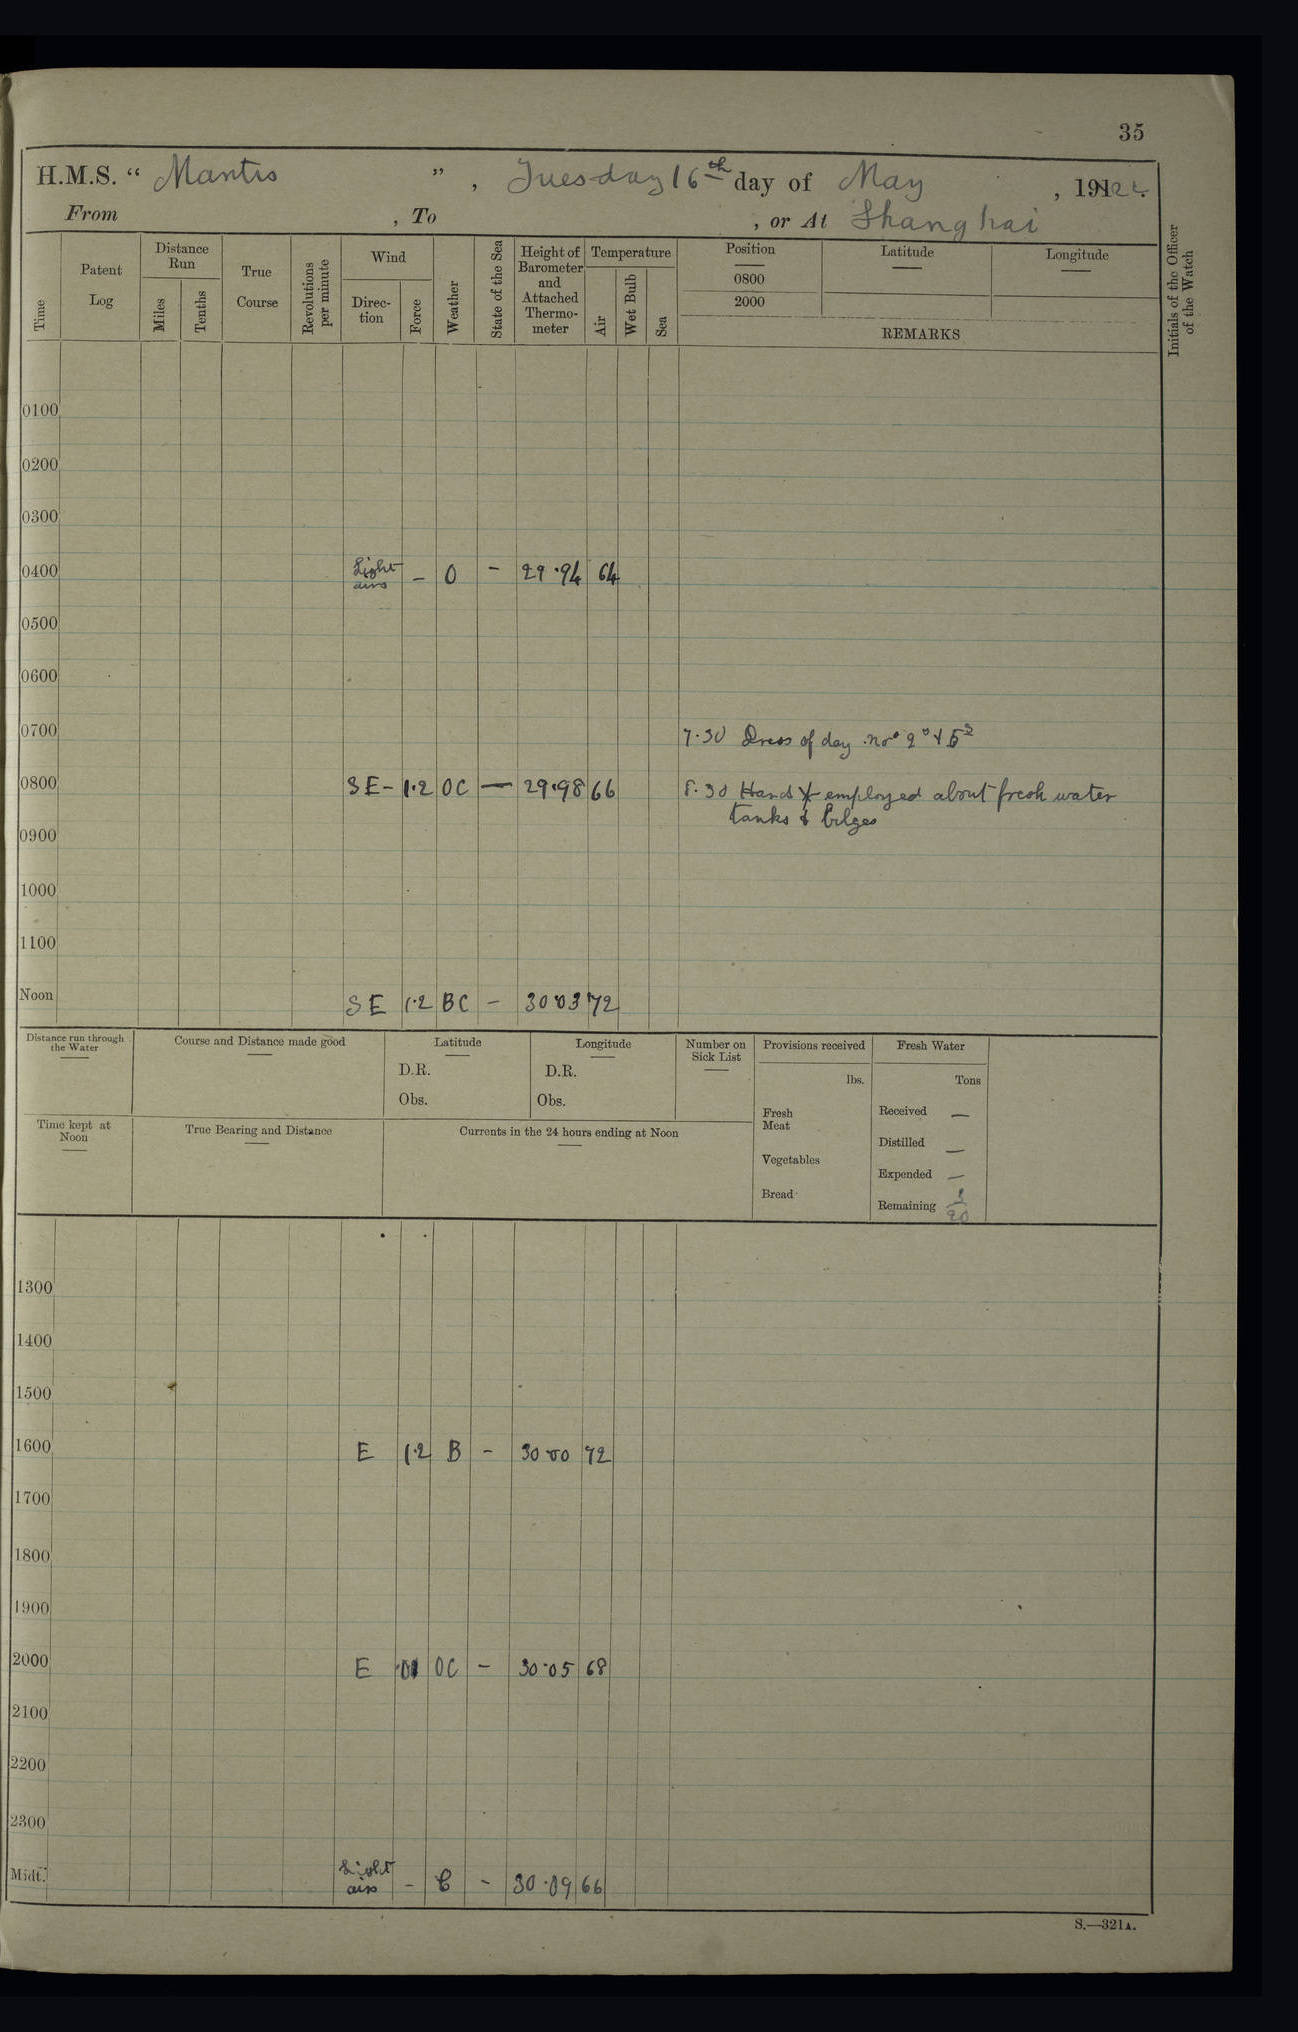 35
H.M.S. “ Mantis ” , Tuesday 16th day of May , 1922.
From , To , or At Shanghai
Time
Patent Log
Distance Run
Miles
Tenths
True Course
Revolutions per minute
Wind
Direc-tion
Force
Weather
State of the Sea
Height of Barometer and Attached Thermo-meter
Temperature
Air
Wet Bulb
Sea
Position
0800
2000
Latitude
Longitude
REMARKS
Initials of the Officer of the Watch
0100
0200
0300
0400 Light airs – O – 29.94 64
0500
0600
0700
7.30 Dress of day No
0800 SE- 1.2 OC — 29.98 66
8.30 Hands employed about fresh water
tanks & bilges
0900
1000
1100
Noon SE 1.2 BC – 30.03 72
Distance run through the Water
Course and Distance made good
Latitude
D.R.
Obs.
Longitude
D.R.
Obs.
Number on Sick List
Provisions received
lbs.
Fresh Meat
Vegetables
Bread
Fresh Water
Tons
Received —
Distilled —
Expended —
Remaining
Time kept at Noon
True Bearing and Distance
Currents in the 24 hours ending at Noon
1300
1400
1500
1600 E 1.2 B – 30.00 72
1700
1800
1900
2000 E OC – 30.05 68
2100
2200
2300
Midt. Light airs – C – 30.09 66
S.—321A.